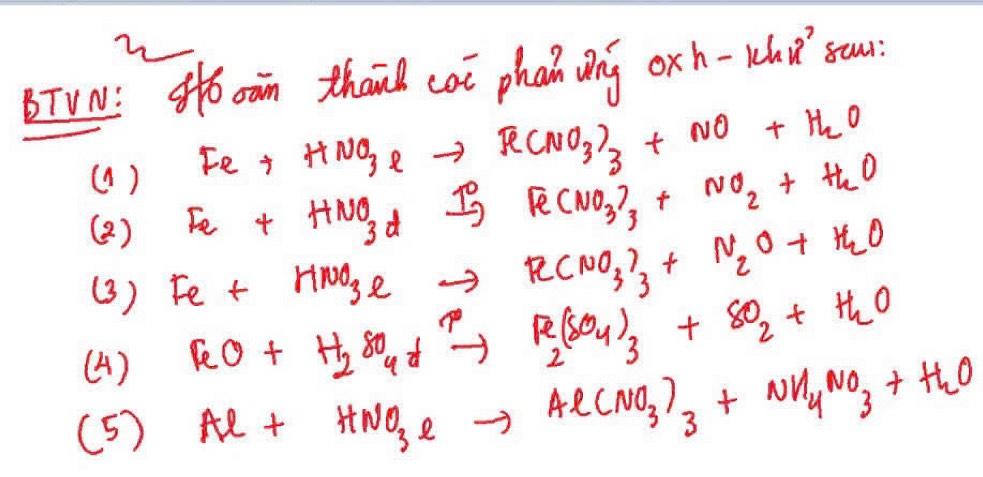 BTVN: Hoàn thành các phản ứng oxh - khử sau:
(1) Fe + HNO₃ l → Fe(NO₃)₃ + NO + H₂O
(2) Fe + HNO₃ đ →(t°) Fe(NO₃)₃ + NO₂ + H₂O
(3) Fe + HNO₃ l → Fe(NO₃)₃ + N₂O + H₂O
(4) FeO + H₂SO₄ đ →(t°) Fe₂(SO₄)₃ + SO₂ + H₂O
(5) Al + HNO₃ l → Al(NO₃)₃ + NH₄NO₃ + H₂O